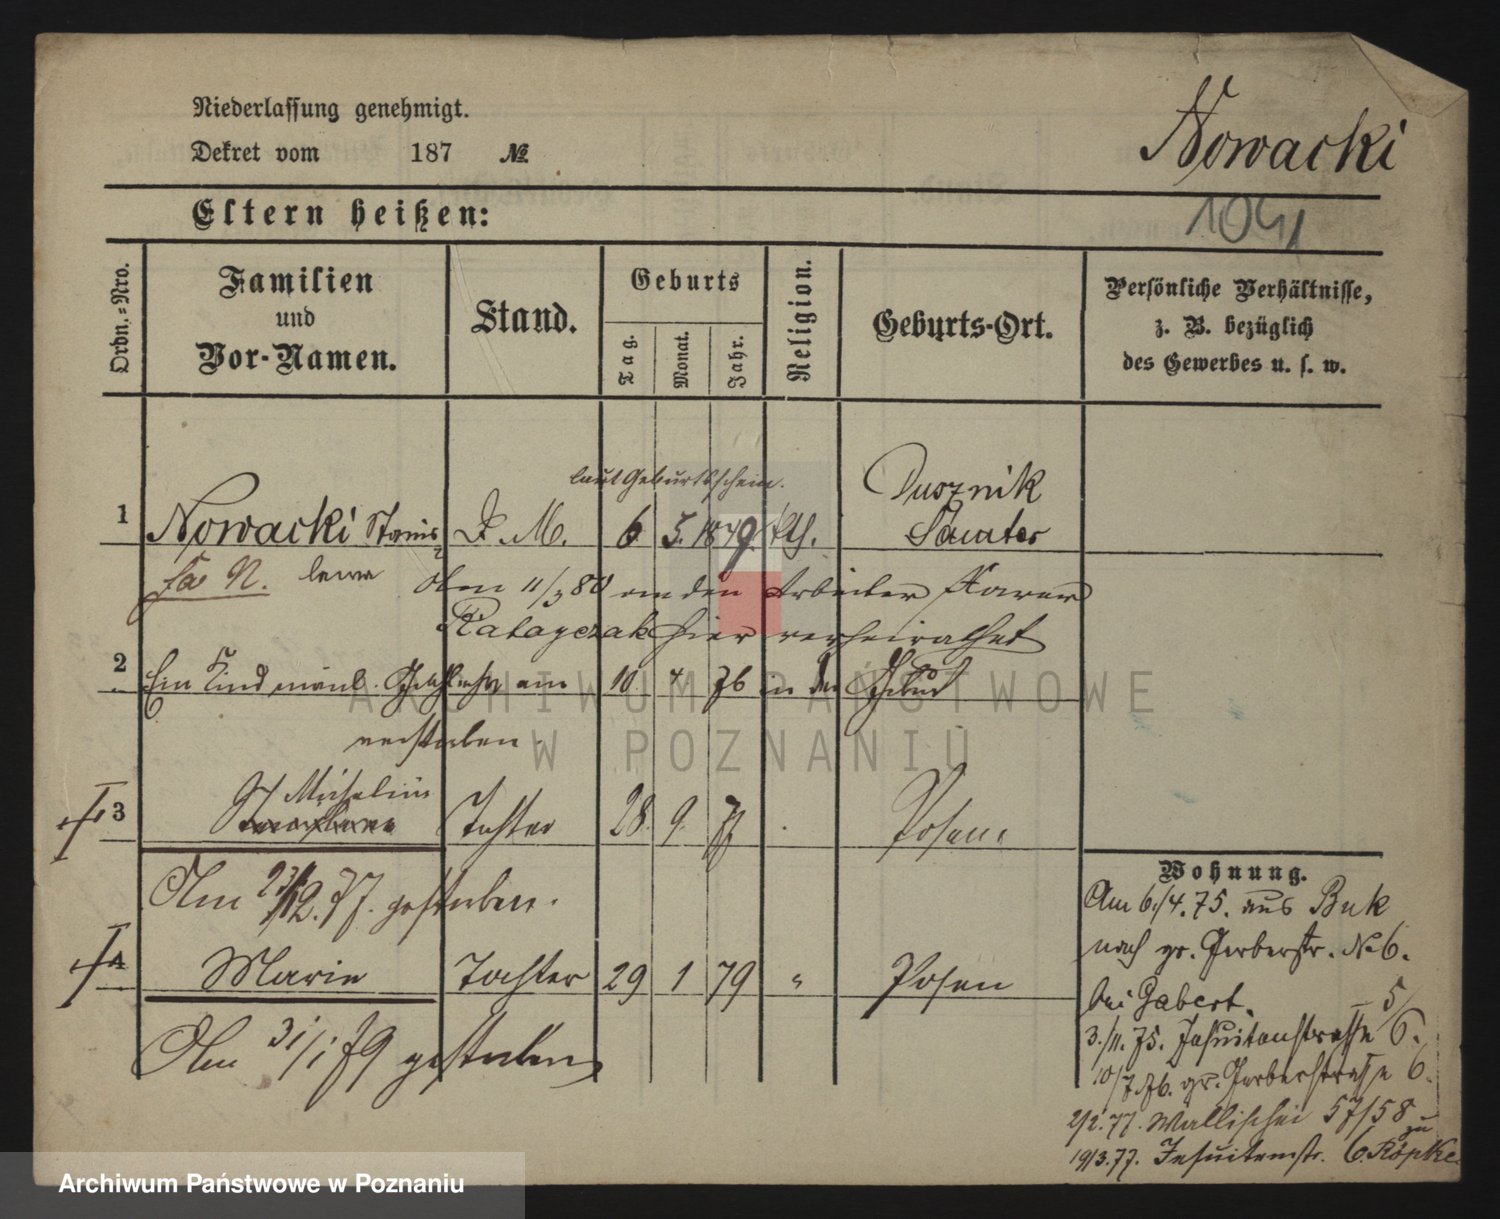 Niederlassung genehmigt.
Dekret vom 187 №
Nowacki
1041
Eltern heißen:
Ordn.=Nro.
Familien
und
Vor-Namen.
Stand.
Geburts
Tag.
Monat.
Jahr.
Religion.
Geburts-Ort.
Persönliche Verhältnisse,
z. B. bezüglich
des Gewerbes u. s. w.
laut Geburtsschein.
Dusznik
1 Nowacki Stanis D. M. 6 5. 1849 kth. Samter
lawa
Am 11/3 80 an den Arbeiter
Ratayczak hier verheirathet
2 Ein Kind männl. Geschlechts am 10 4 76 in der Geburt
verstorben.
3 Michalina Tochter 28. 9. 77 Posen.
Am 23/12. 77. gestorben.
4 Marie Tochter 29 1 79 " Posen
Am 31/1 79 gestorben
Wohnung.
Am 6./4. 75. aus Buk
nach gr. Gerberstr. No 6.
bei Gabert.
3./11. 75. Jesuitenstrasse 5/6.
10/7. 76. gr. Gerberstrasse 6.
2/2. 77. Wallischei 57/58 zu
19/3. 77. Jesuitenstr. 6. Röpke
ARCHIWUM PAŃSTWOWE
W POZNANIU
Archiwum Państwowe w Poznaniu